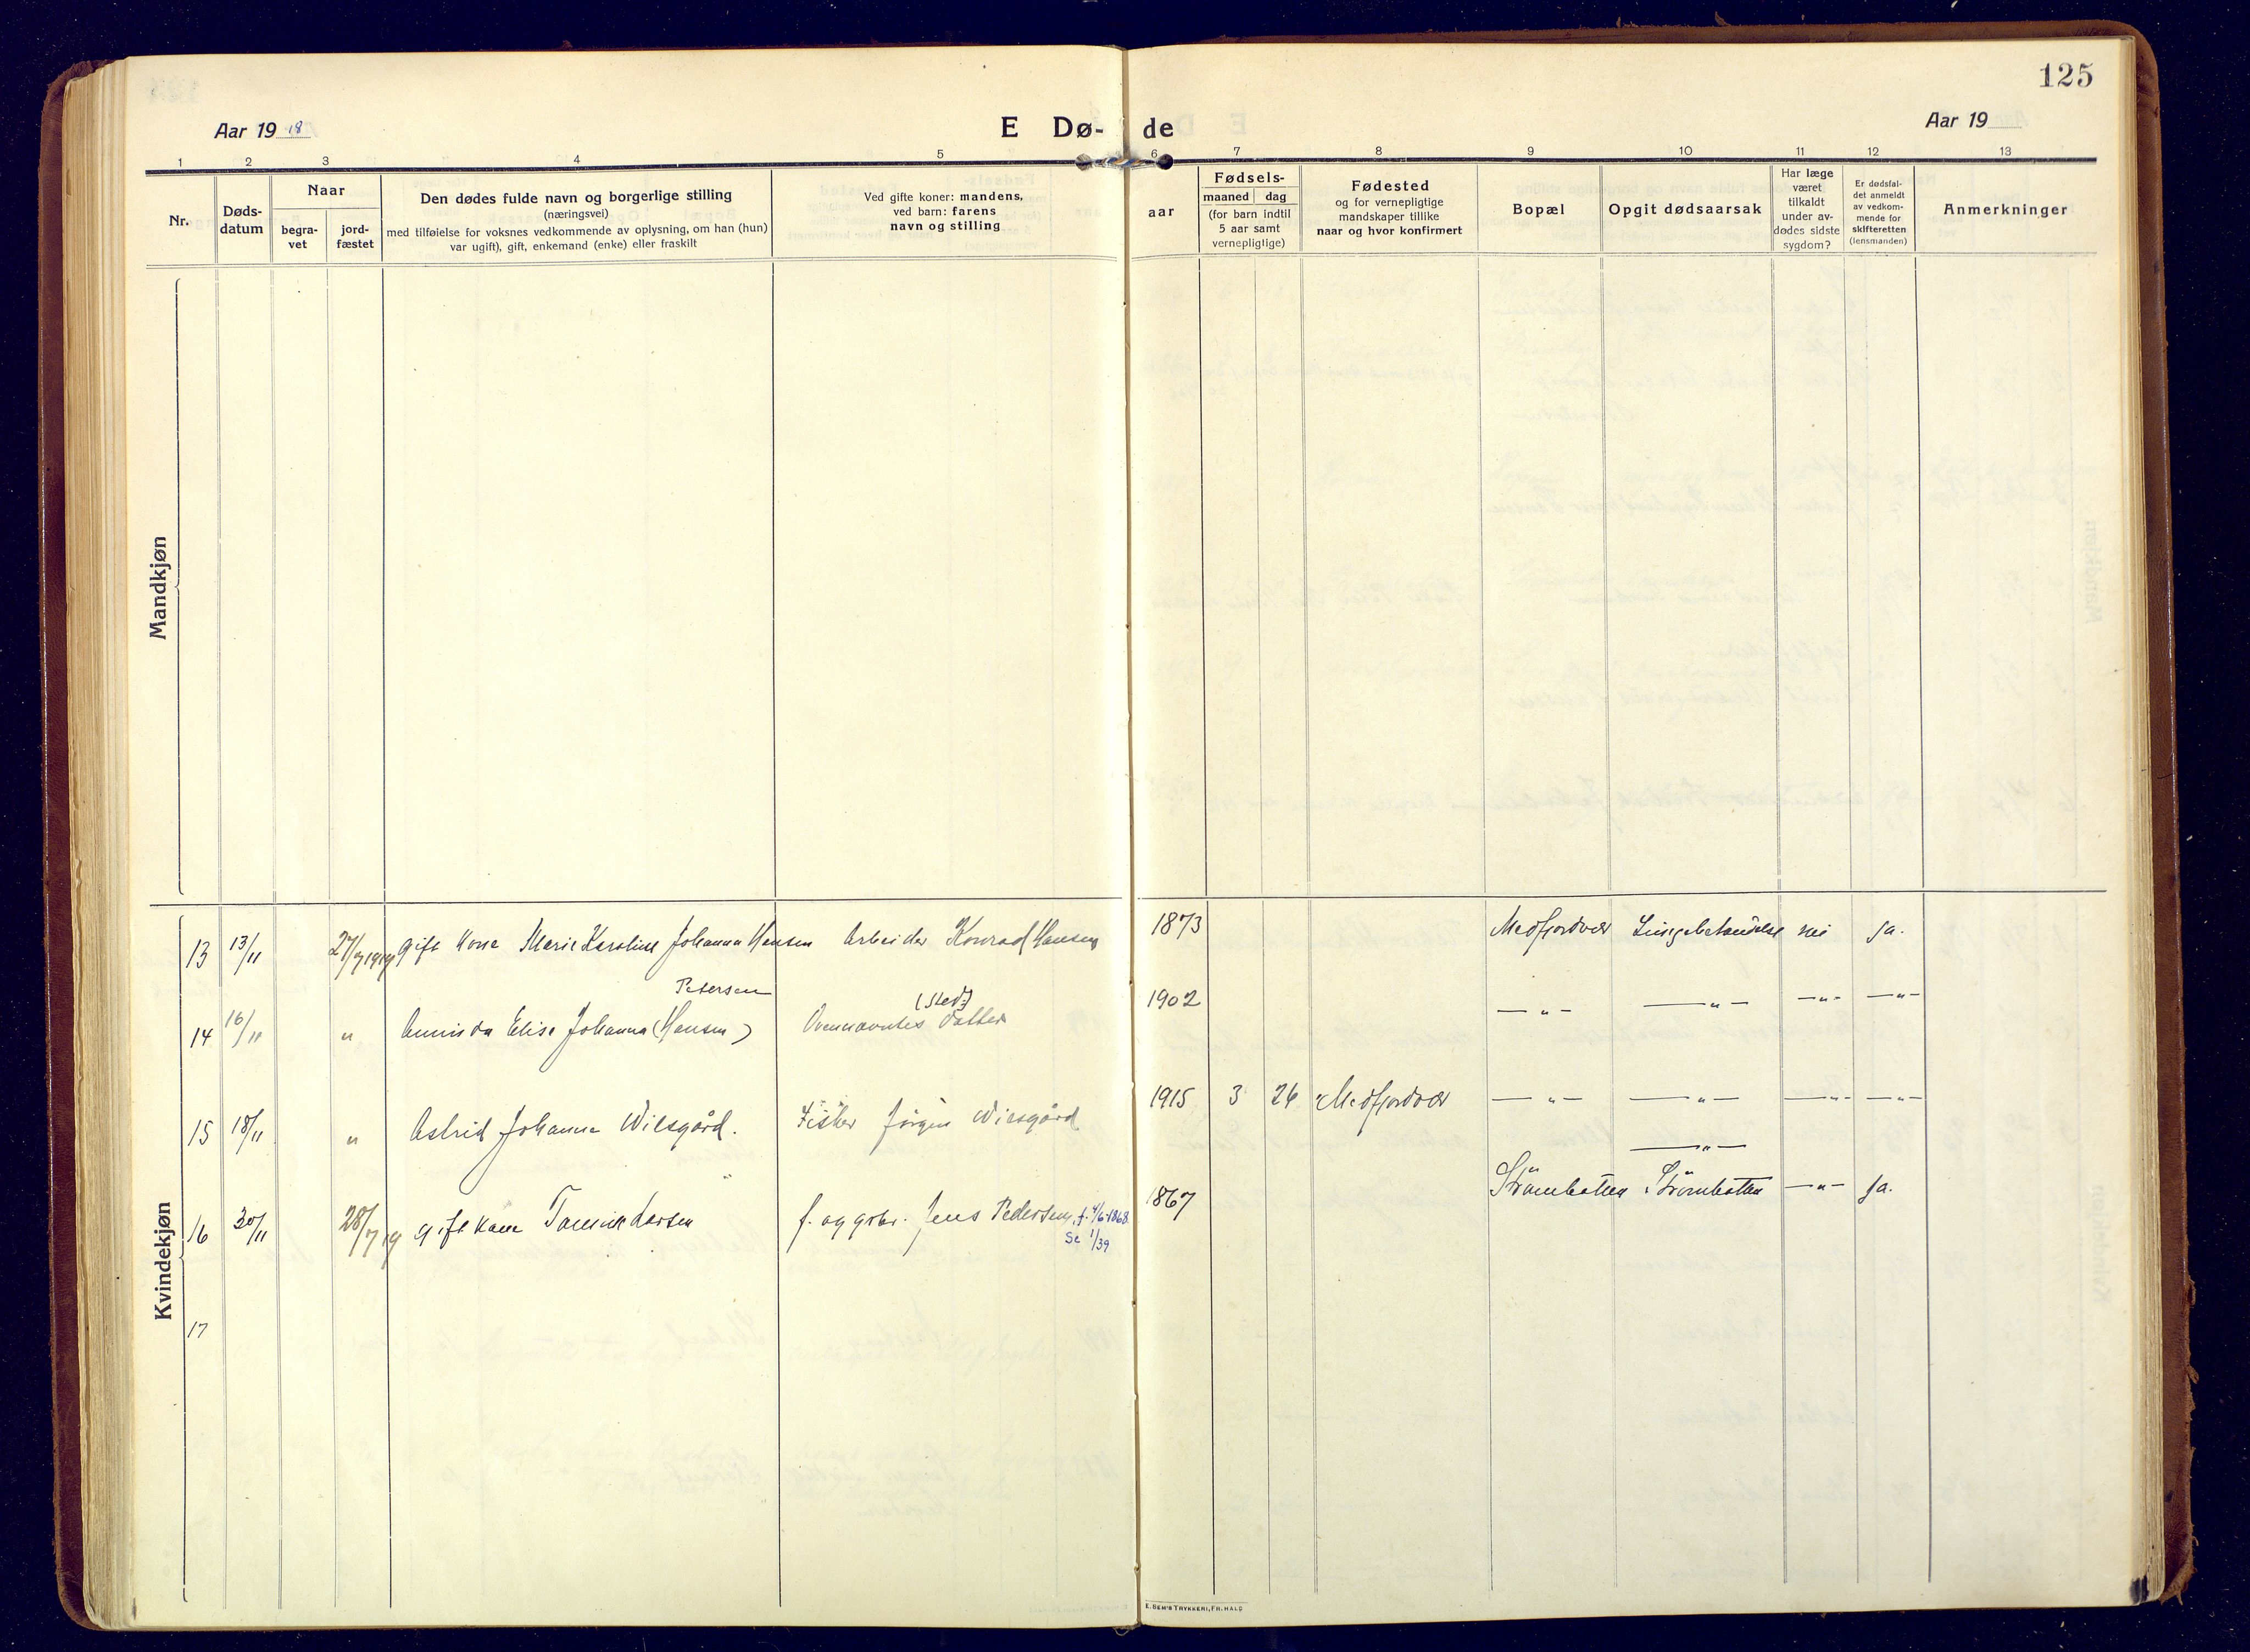 125
Aar 19 18
E Dø- de
Aar 19
1 2 3 4 5 6 7 8 9 10 11 12 13
Nr.
Døds-
datum
Naar
begra-
vet
jord-
fæstet
Den dødes fulde navn og borgerlige stilling
(næringsvei)
med tilføielse for voksnes vedkommende av oplysning, om han (hun)
var ugift), gift, enkemand (enke) eller fraskilt
Ved gifte koner: mandens,
ved barn: farens
navn og stilling
aar
Fødsels-
maaned dag
(for barn indtil
5 aar samt
vernepligtige)
Fødested
og for vernepligtige
mandskaper tillike
naar og hvor konfirmert
Bopæl
Opgit dødsaarsak
Har læge
været
tilkaldt
under av-
dødes sidste
sygdom?
Er dødsfal-
det anmeldt
av vedkom-
mende for
skifteretten
(lensmanden)
Anmerkninger
Mandkjøn
Kvindekjøn
13 13/11 27/7 1919 gift kone Marie Karoline Johanna Hansen Arbeider Konrad Hansen 1873 Medfjordvær nei ja.
Petersen (sted)
14 16/11 " Elise Johanna (Hansen) Ovennævntes datter 1902 —"— —"— —"— —"—
15 18/11 " Astrid Johanne Wilsgård. Fisker Jörgen Wilsgård 1915 3 26 Medfjordvær —"— —"— —"— —"—
—"—
16 30/11 28/7 19 gift kone Larsen f. og grbr. Jens Pedersen, f. 4/6-1868. 1867 Strömbotten Strömbotten —"— ja.
Se 1/39
17
E. SEM'S TRYKKERI, FR.HALD